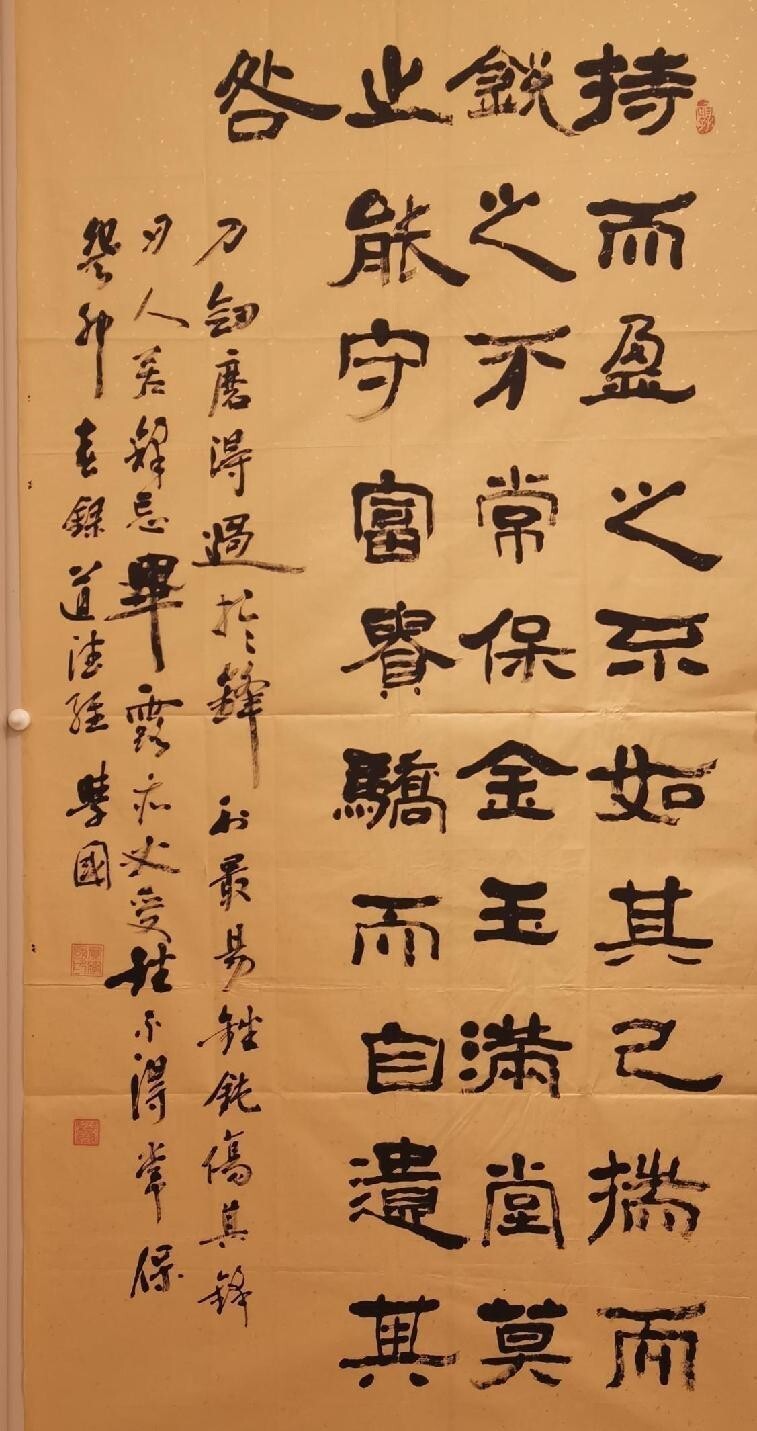 持而盈之不如其已揣而
銳之不常保金玉滿堂莫
之能守富貴驕而自遺其
咎
刀釼磨得過於鋒利最易銼鈍傷其鋒
刃人若忌畢露亦必受挫不得常保
癸卯春錄道德經國